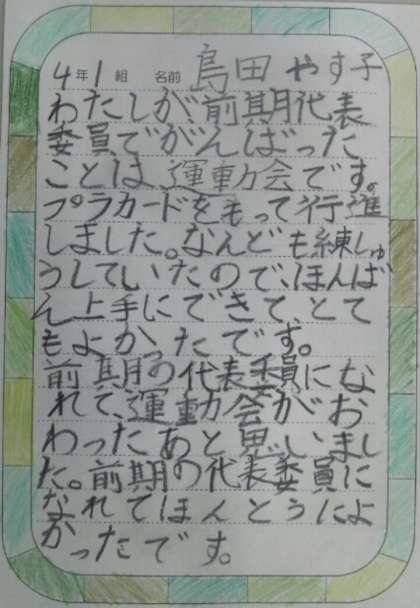 4年1組 名前 島田 やす子
わたしが前期代表
委員でがんばった
ことは、運動会です。
プラカードをもって行進
しました。なんども練しゅ
うしていたので、ほんば
ん上手にできて、とて
もよかったです。
前期の代表委員にな
れて、運動会がお
わったあと思いまし
た。前期の代表委員に
なれてほんとうによ
かったです。